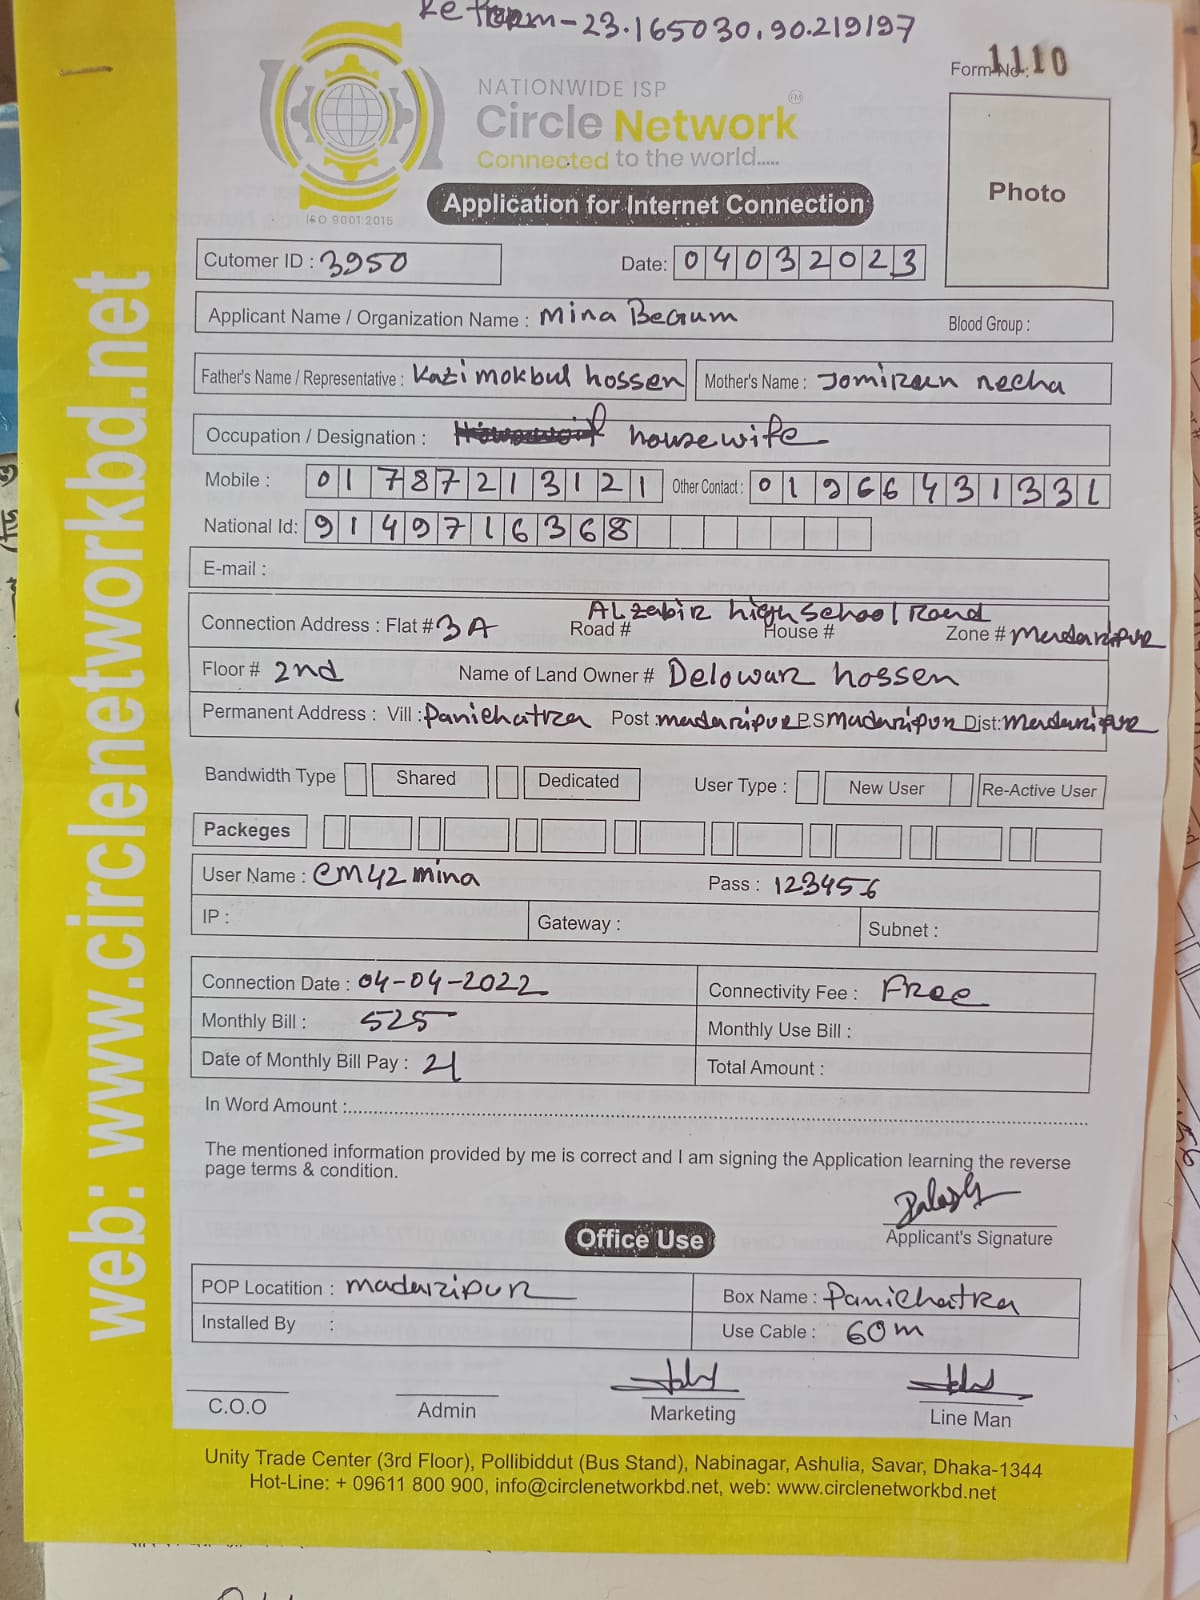 Reform-23.165030,90.219197
Form No: 1110
NATIONWIDE ISP
Circle Network
Connected to the world.....
ISO 9001:2015
Application for Internet Connection
Photo
Cutomer ID : 3950 Date: 04032023
Applicant Name / Organization Name : Mina Begum Blood Group :
Father's Name / Representative : Kazi mokbul hossen Mother's Name : Jomiran necha
Occupation / Designation : housewife
Mobile : 01787213121 Other Contact : 01966431331
National Id: 9149716368
E-mail :
ALzabir high School Road
Connection Address : Flat # 3A Road # House # Zone # Madaripur
Floor # 2nd Name of Land Owner # Delowar hossen
Permanent Address : Vill : Panichatra Post : madaripur P.S madaripur Dist: Madaripur
Bandwidth Type Shared Dedicated User Type : New User Re-Active User
Packeges
User Name : cm42mina Pass : 123456
IP : Gateway : Subnet :
Connection Date : 04-04-2022 Connectivity Fee : Free
Monthly Bill : 525 Monthly Use Bill :
Date of Monthly Bill Pay : 21 Total Amount :
In Word Amount :
The mentioned information provided by me is correct and I am signing the Application learning the reverse
page terms & condition.
Applicant's Signature
Office Use
POP Locatition : madaripur Box Name : Panichatra
Installed By : Use Cable : 60m
C.O.O Admin Marketing Line Man
Unity Trade Center (3rd Floor), Pollibiddut (Bus Stand), Nabinagar, Ashulia, Savar, Dhaka-1344
Hot-Line: + 09611 800 900, info@circlenetworkbd.net, web: www.circlenetworkbd.net
web: www.circlenetworkbd.net